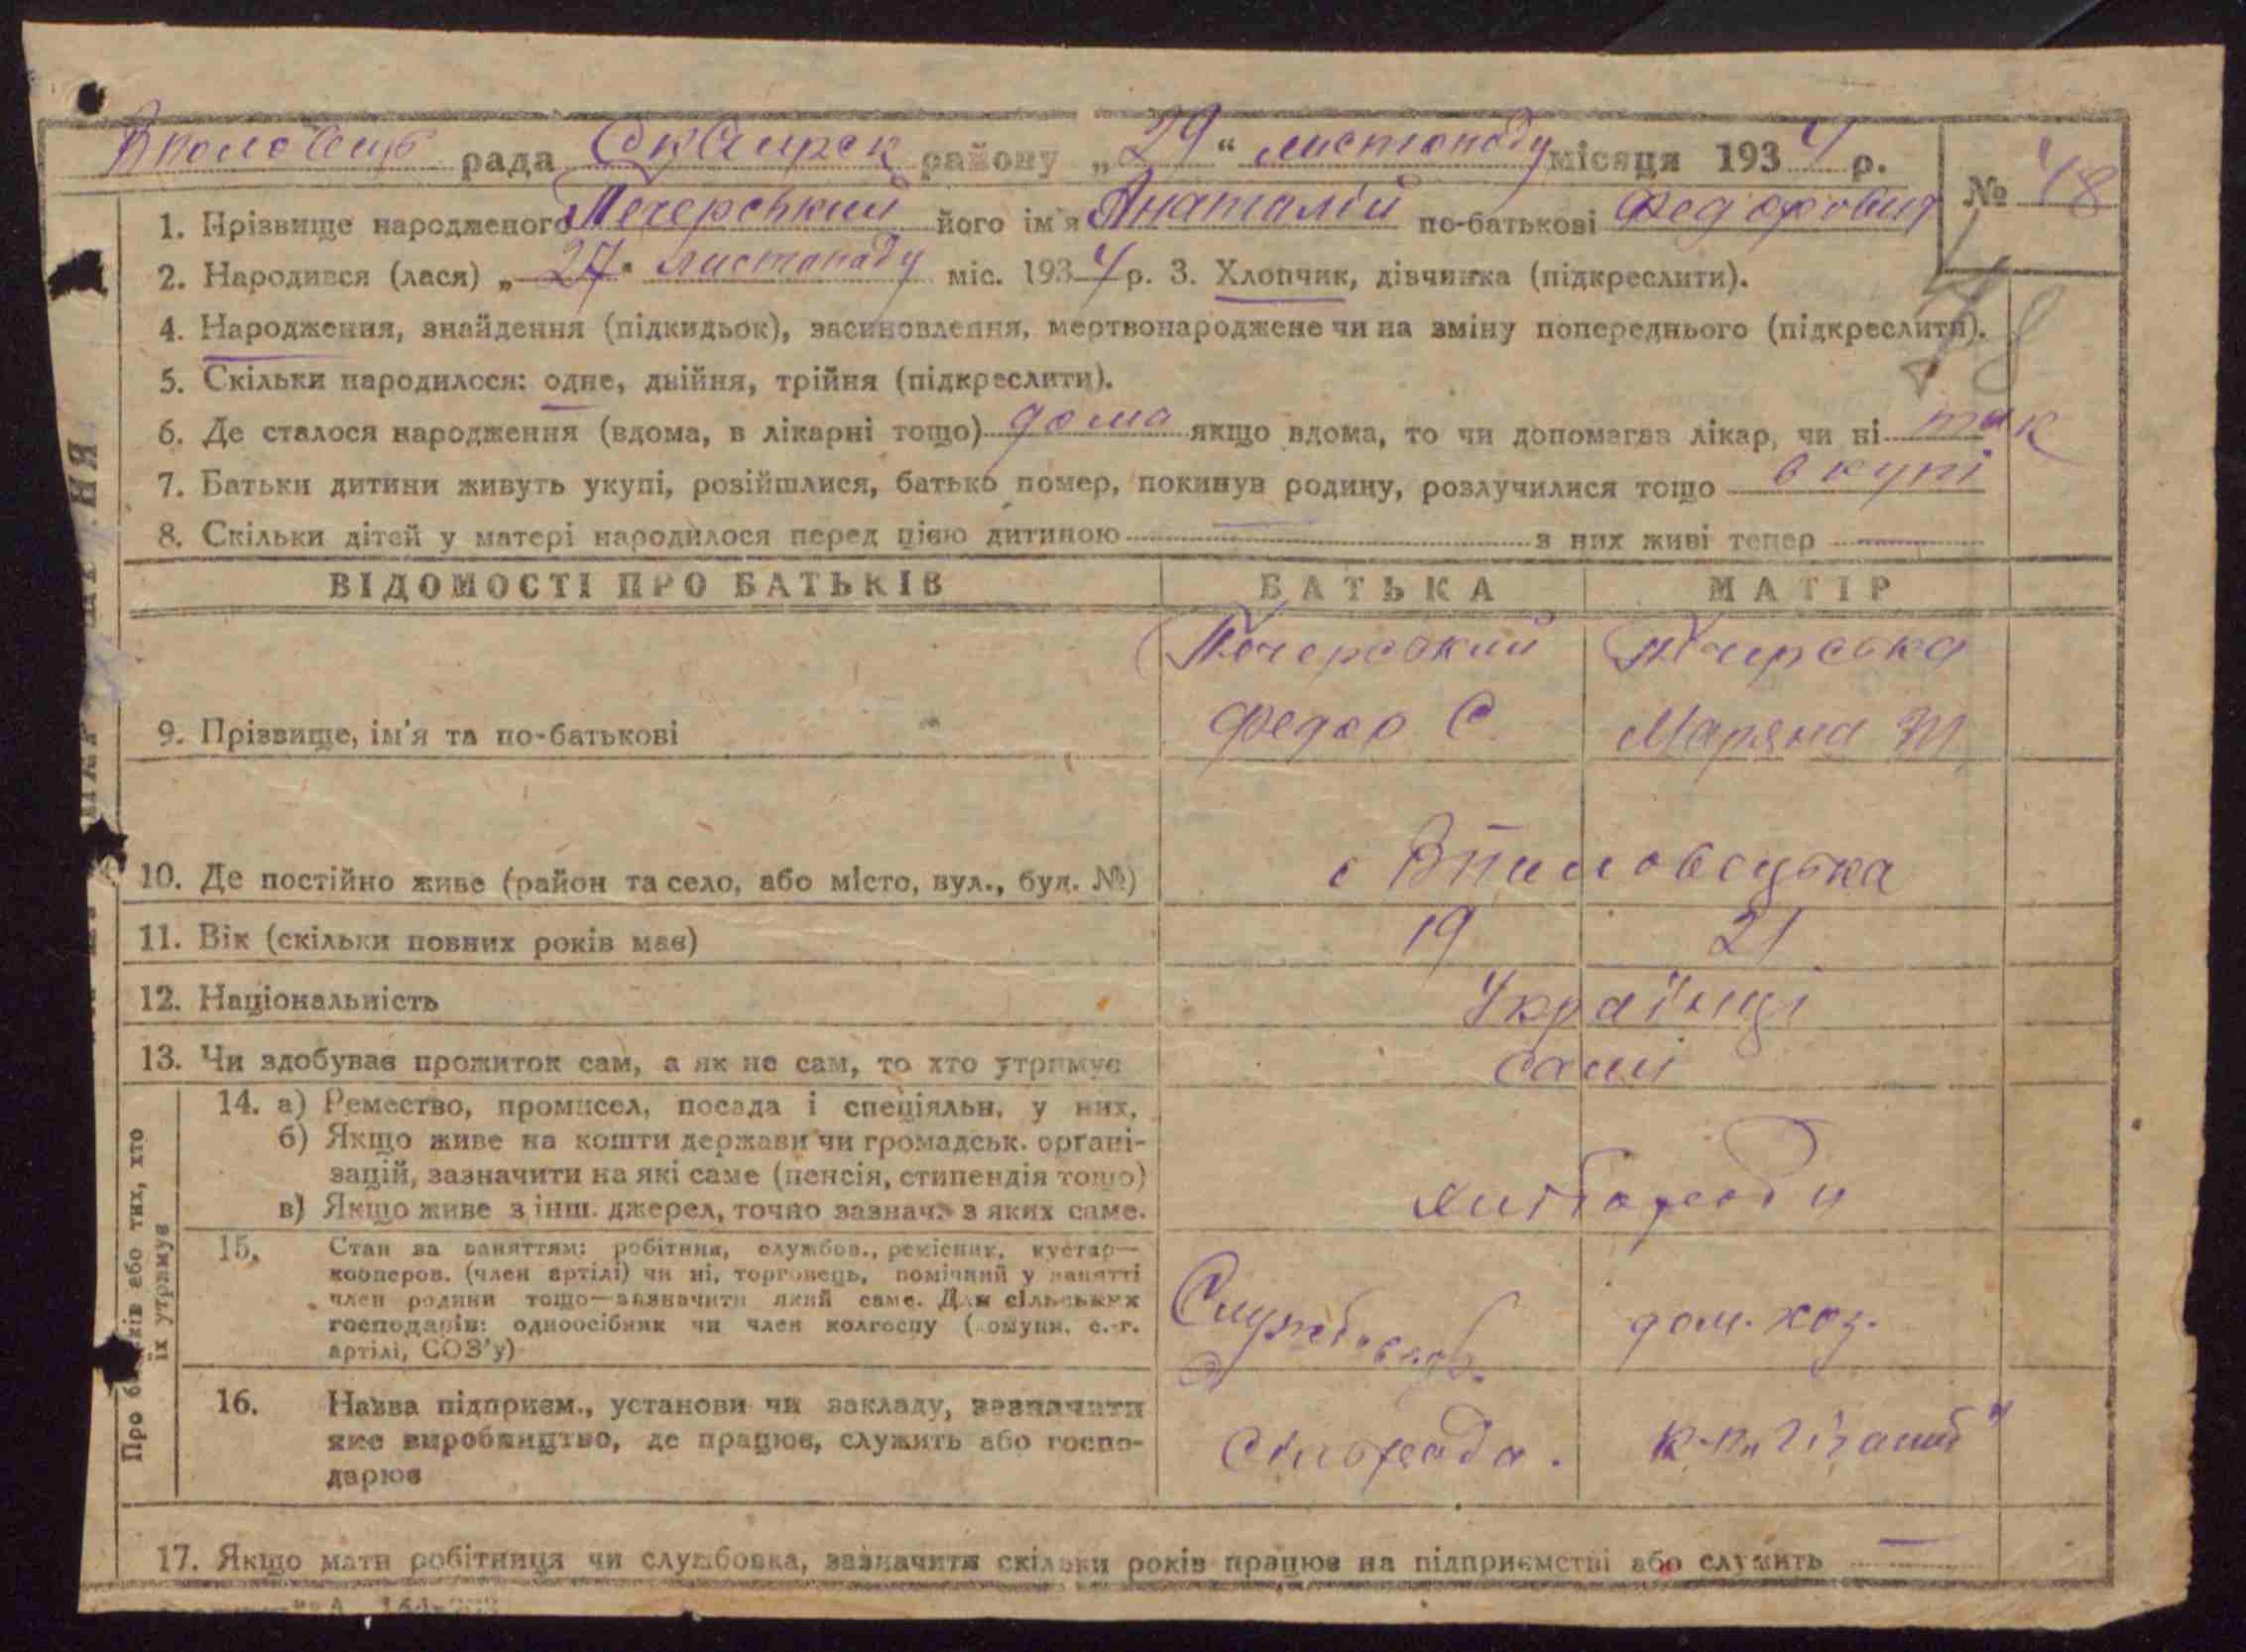 рада Сквирск району „29“ листопаду місяця 1934 р.
№ 48
1. Прізвище народженого Печерський його ім'я Анаталій по-батькові Федорович
2. Народився (лася) „27“ листопаду міс. 1934 р. 3. Хлопчик, дівчинка (підкреслити).
4. Народження, знайдення (підкидьок), засиновлення, мертвонароджене чи на зміну попереднього (підкреслити).
5. Скільки народилося: одне, двійня, трійня (підкреслити).
6. Де сталося народження (вдома, в лікарні тощо) дома якщо вдома, то чи допомагав лікар, чи ні так
7. Батьки дитини живуть укупі, розійшлися, батько помер, покинув родину, розлучилися тощо вкупі
8. Скільки дітей у матері народилося перед цією дитиною — з них живі тепер —
ВІДОМОСТІ ПРО БАТЬКІВ БАТЬКА МАТІР
Печерский
Федор С. Маряна
9. Прізвище, ім'я та по-батькові
10. Де постійно живе (район та село, або місто, вул., буд. №) с
11. Вік (скільки повних років має) 19 21
12. Національність Українці
13. Чи здобуває прожиток сам, а як не сам, то хто утримує самі
Про батьків або тих, хто їх утримує
14. а) Ремество, промисел, посада і спеціяльн. у них,
б) Якщо живе на кошти держави чи громадськ. органі-
зацій, зазначити на які саме (пенсія, стипендія тощо)
в) Якщо живе з інш. джерел, точно зазнач. з яких саме.
15. Стан за заняттям: робітник, службов., ремісник, кустар—
кооперов. (член артілі) чи ні, торговець, помічний у занятті
член родини тощо—зазначити який саме. Для сільських
господарів: одноосібник чи член колгоспу (комуни, с.-г.
артілі, СОЗ'у)
Службовець дом. хоз.
16. Назва підприєм., установи чи закладу, зазначити
яке виробництво, де працює, служить або госпо-
дарює
Сільрада.
17. Якщо мати робітниця чи службовка, зазначити скільки років працює на підприємстві або служить —